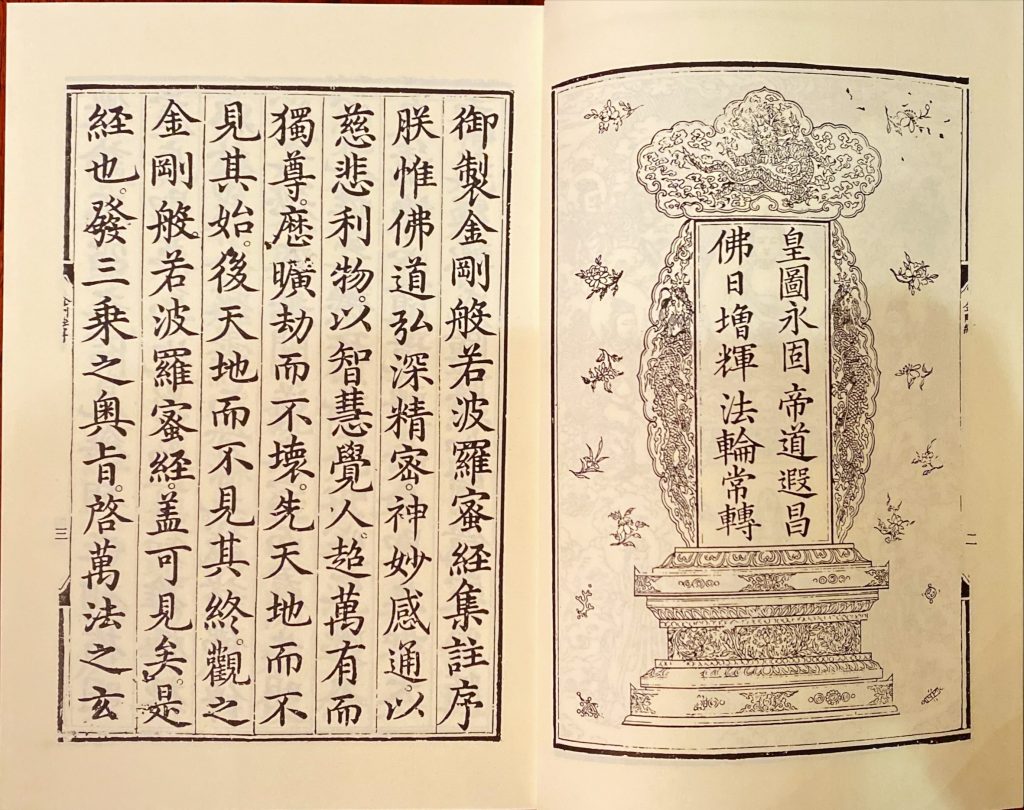 皇圖永固帝道遐昌
佛日增輝法輪常轉
二
御製金剛般若波羅蜜經集註序
朕惟佛道弘深精密。神妙感通。以
慈悲利物。以智慧覺人。超萬有而
獨尊。歷曠劫而不壞。先天地而不
見其始。後天地而不見其終。觀之
金剛般若波羅蜜經。盖可見矣。是
經也。發三乘之奧旨。啓萬法之玄
三